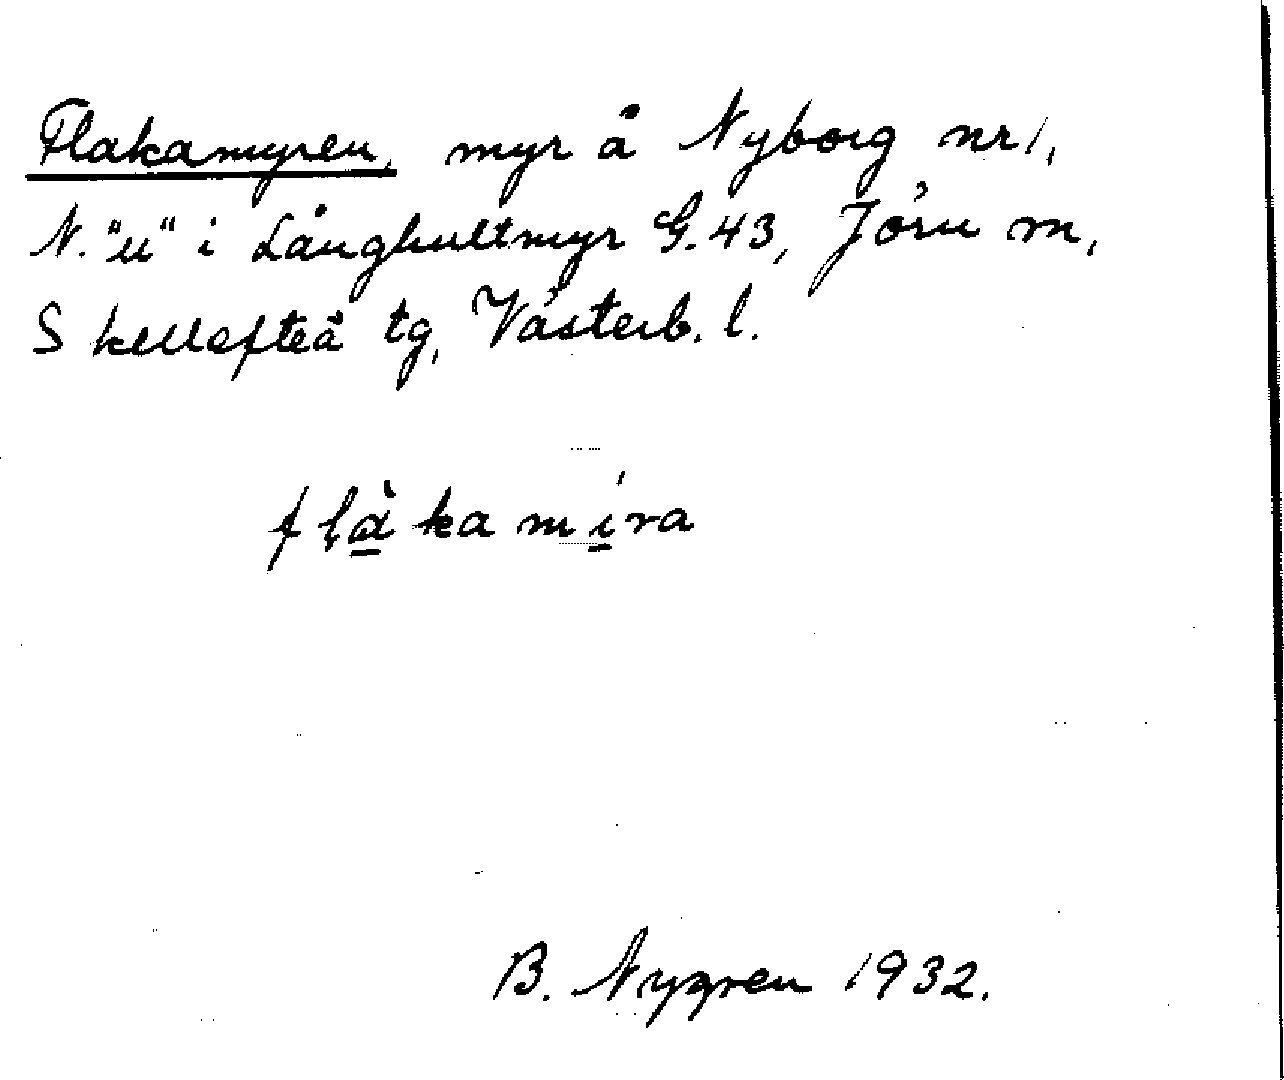 Flakamyren, myr å Nyborg nr 1,
N. "u" i Långhultmyr G. 43, Jörn m,
Skellefteå tg, Västerb. l.
fḷà̱kamí̱ra
B. Nygren 1932.